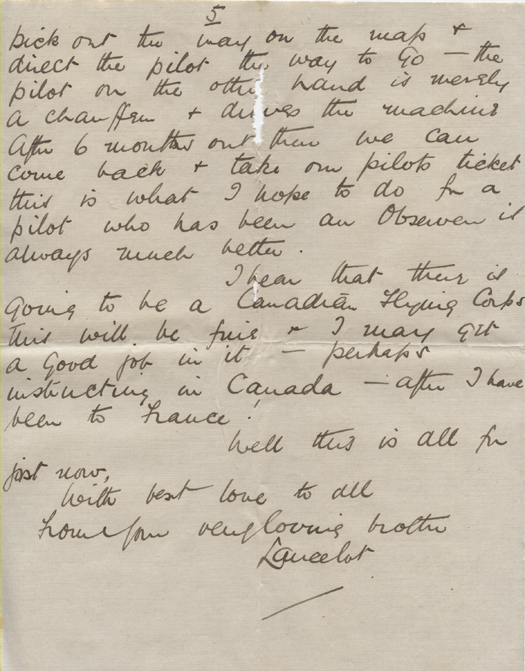 5
pick out the way on the map &
direct the pilot the way to go – the
pilot on the other hand is merely
a chauffeur & drives the machine
After 6 months out there we can
come back & take our pilots ticket
this is what I hope to do for a
pilot who has been an Observer is
always much better.
I hear that there is
going to be a Canadian Flying Corps
this will be fine & I may get
a good job in it – perhaps
instructing in Canada – after I have
been to France!
Well this is all for
just now,
With best love to all
From your very loving brother
Lancelot